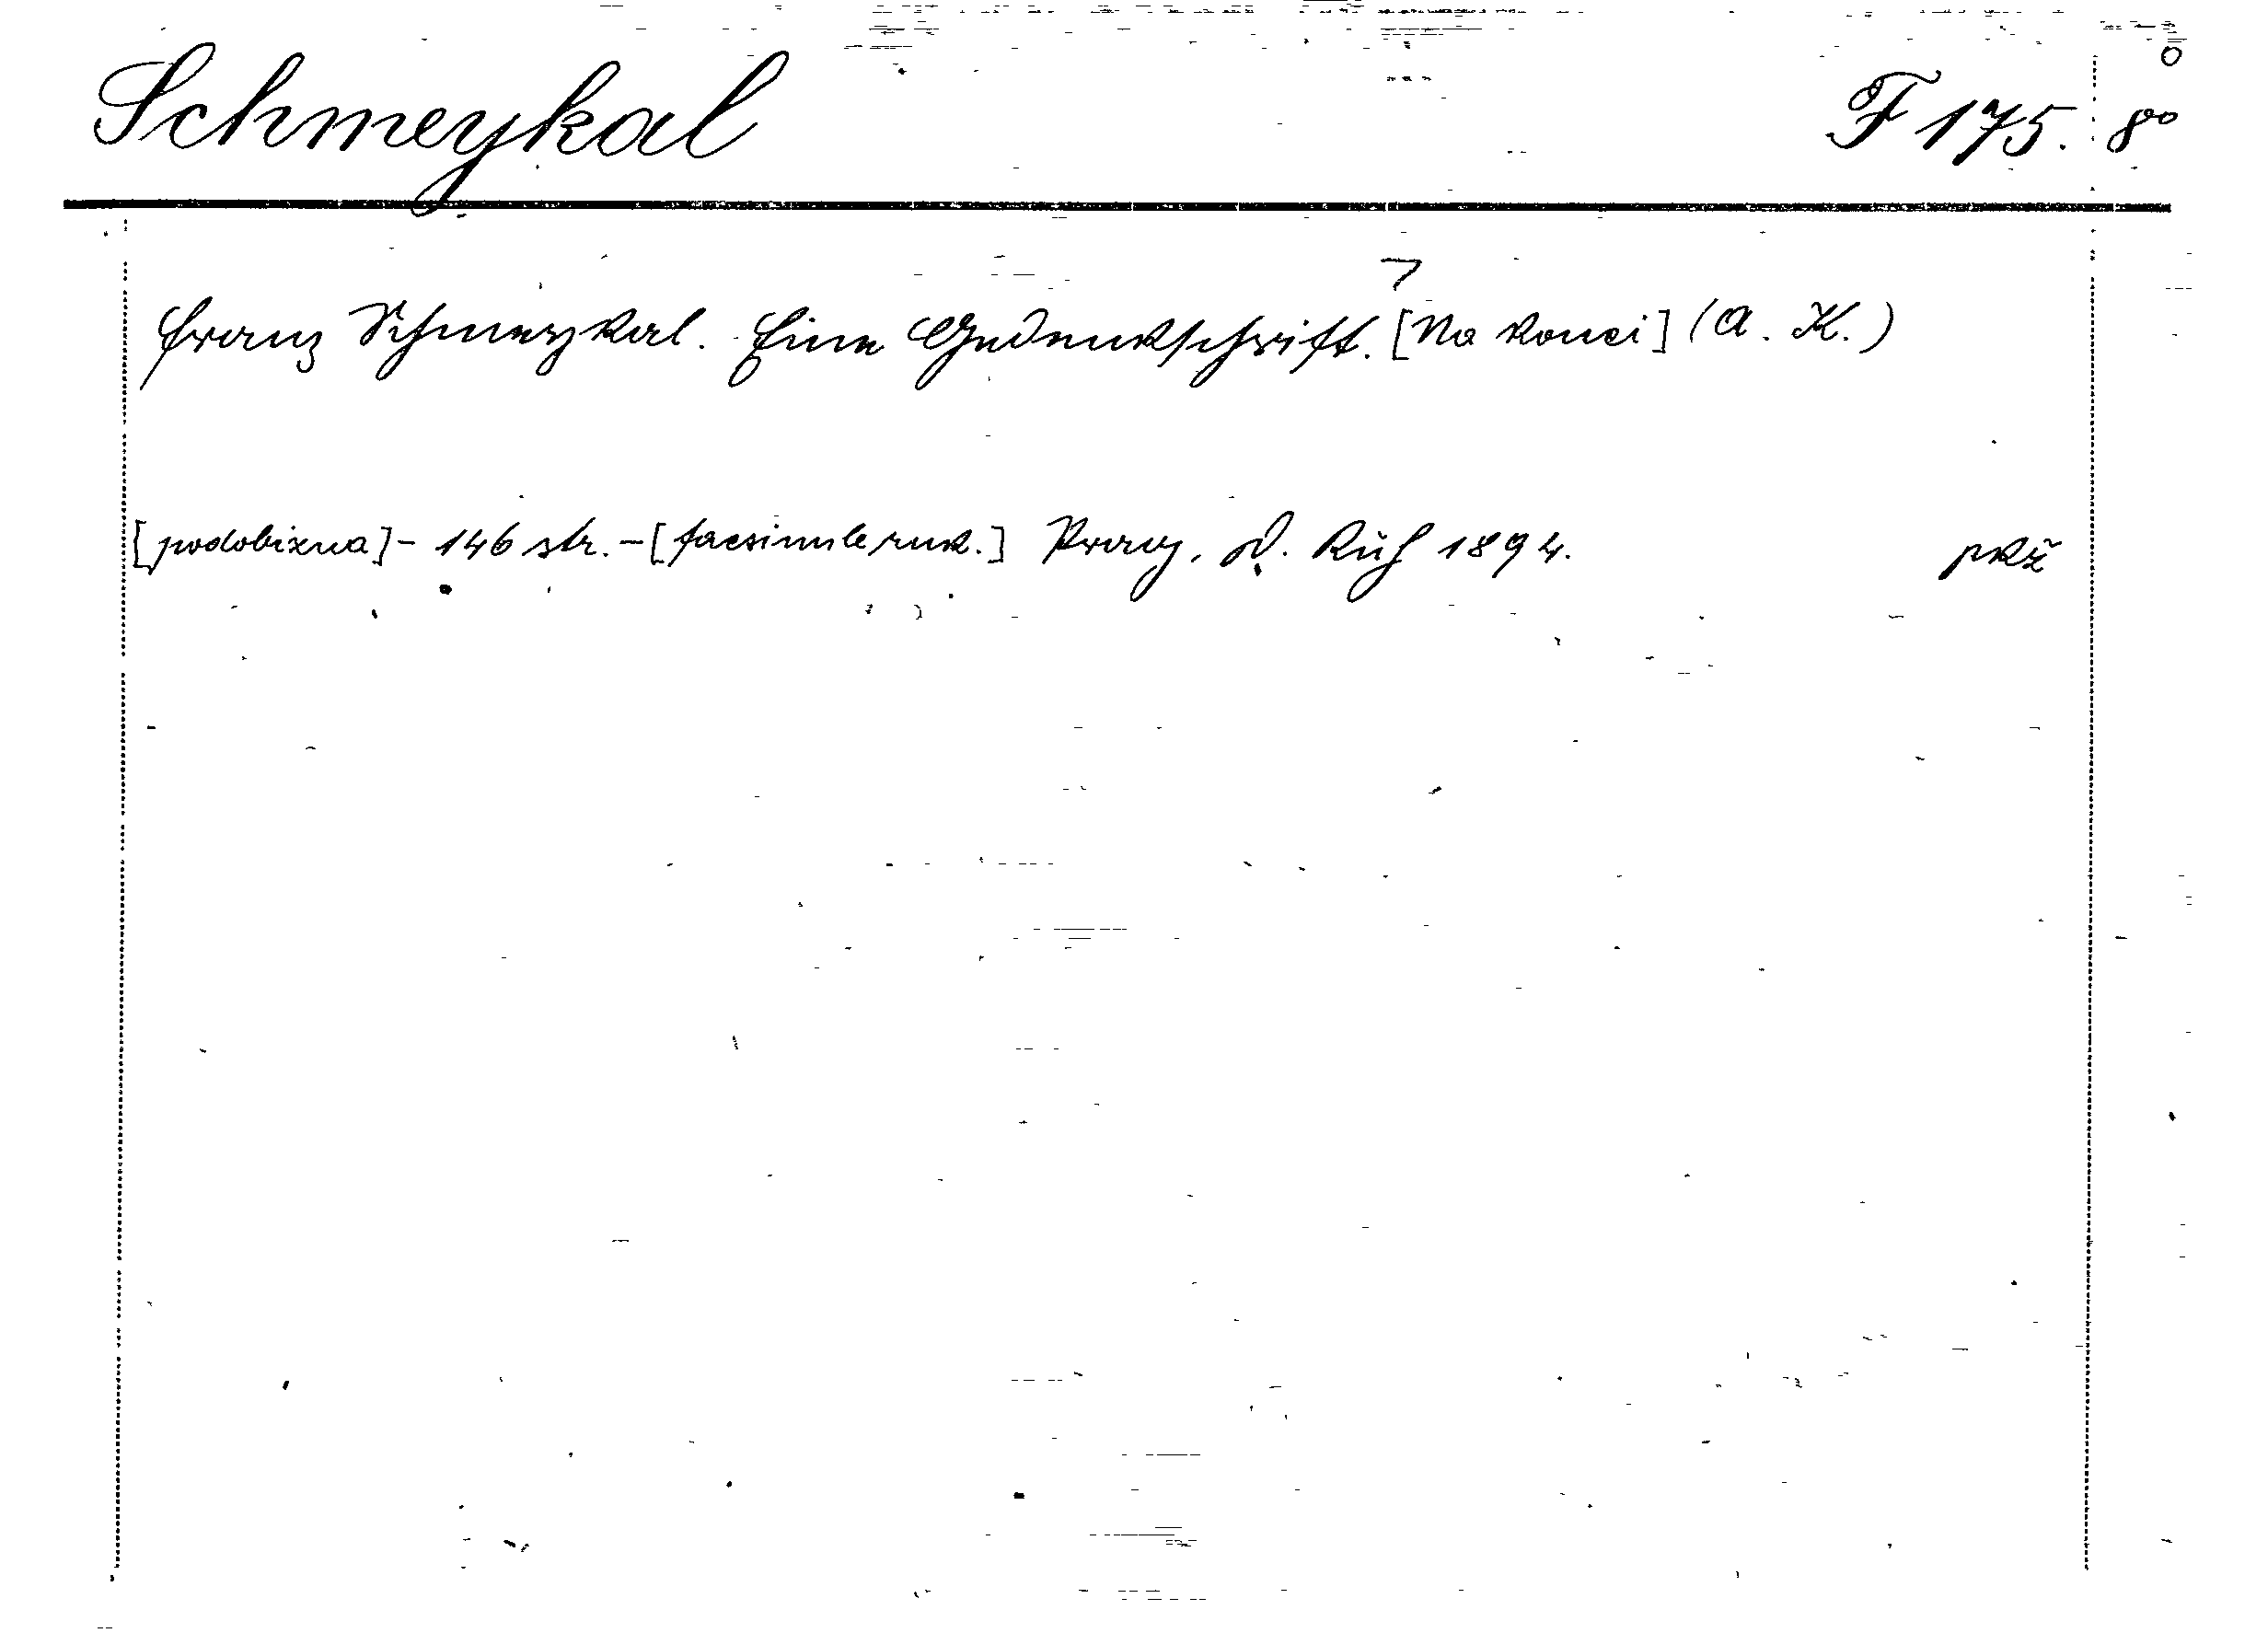 Schmeykal F 175. 8°°
Franz Schmeykal. Eine Gedenkschrift. [Na konci] (A. K.)
[podobizna] - 146 str. - [facsimile ruk.] Prag, A. Kuh 1894. pkž